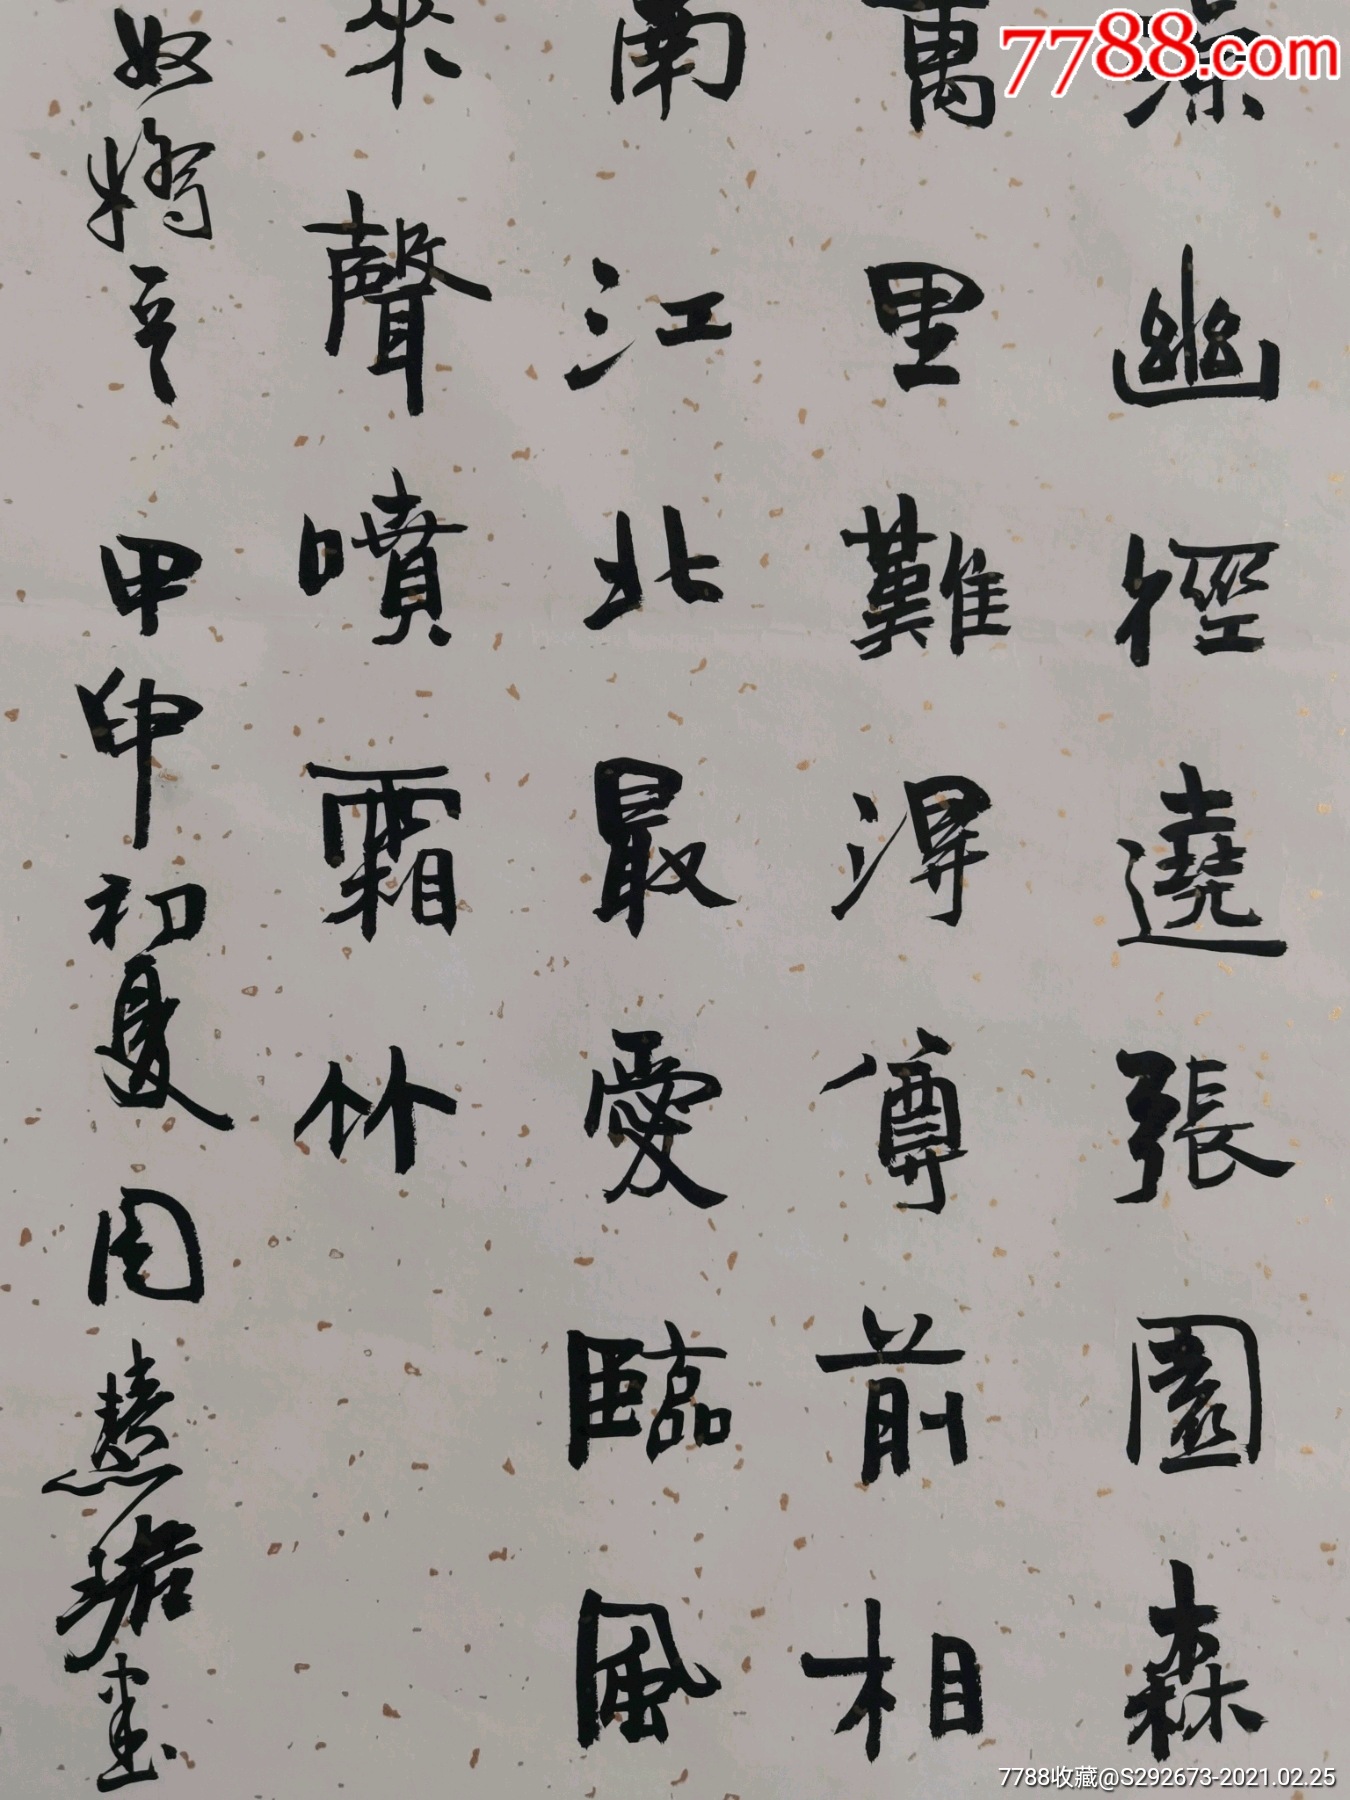 7788.com
涼幽徑遶張園森
萬里難得尊前相
南江北最愛臨風
來聲噴霜竹
奴嬌 甲申初夏 周慧珺書
7788收藏@S292673-2021.02.25